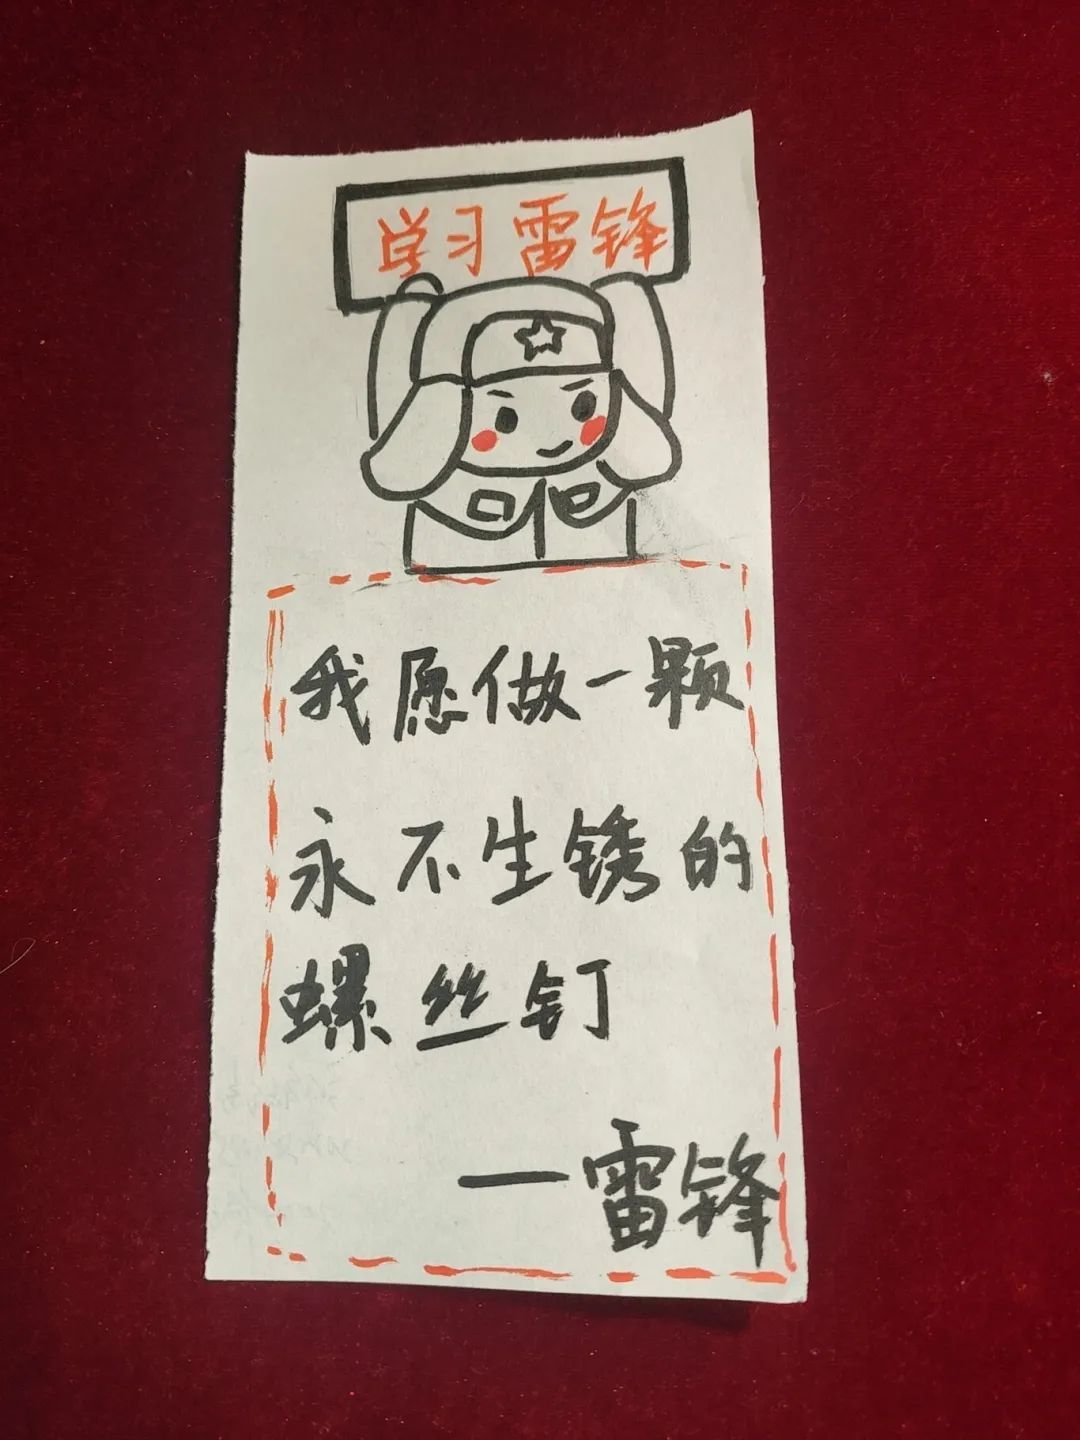 学习雷锋
我愿做一颗
永不生锈的
螺丝钉
一雷锋